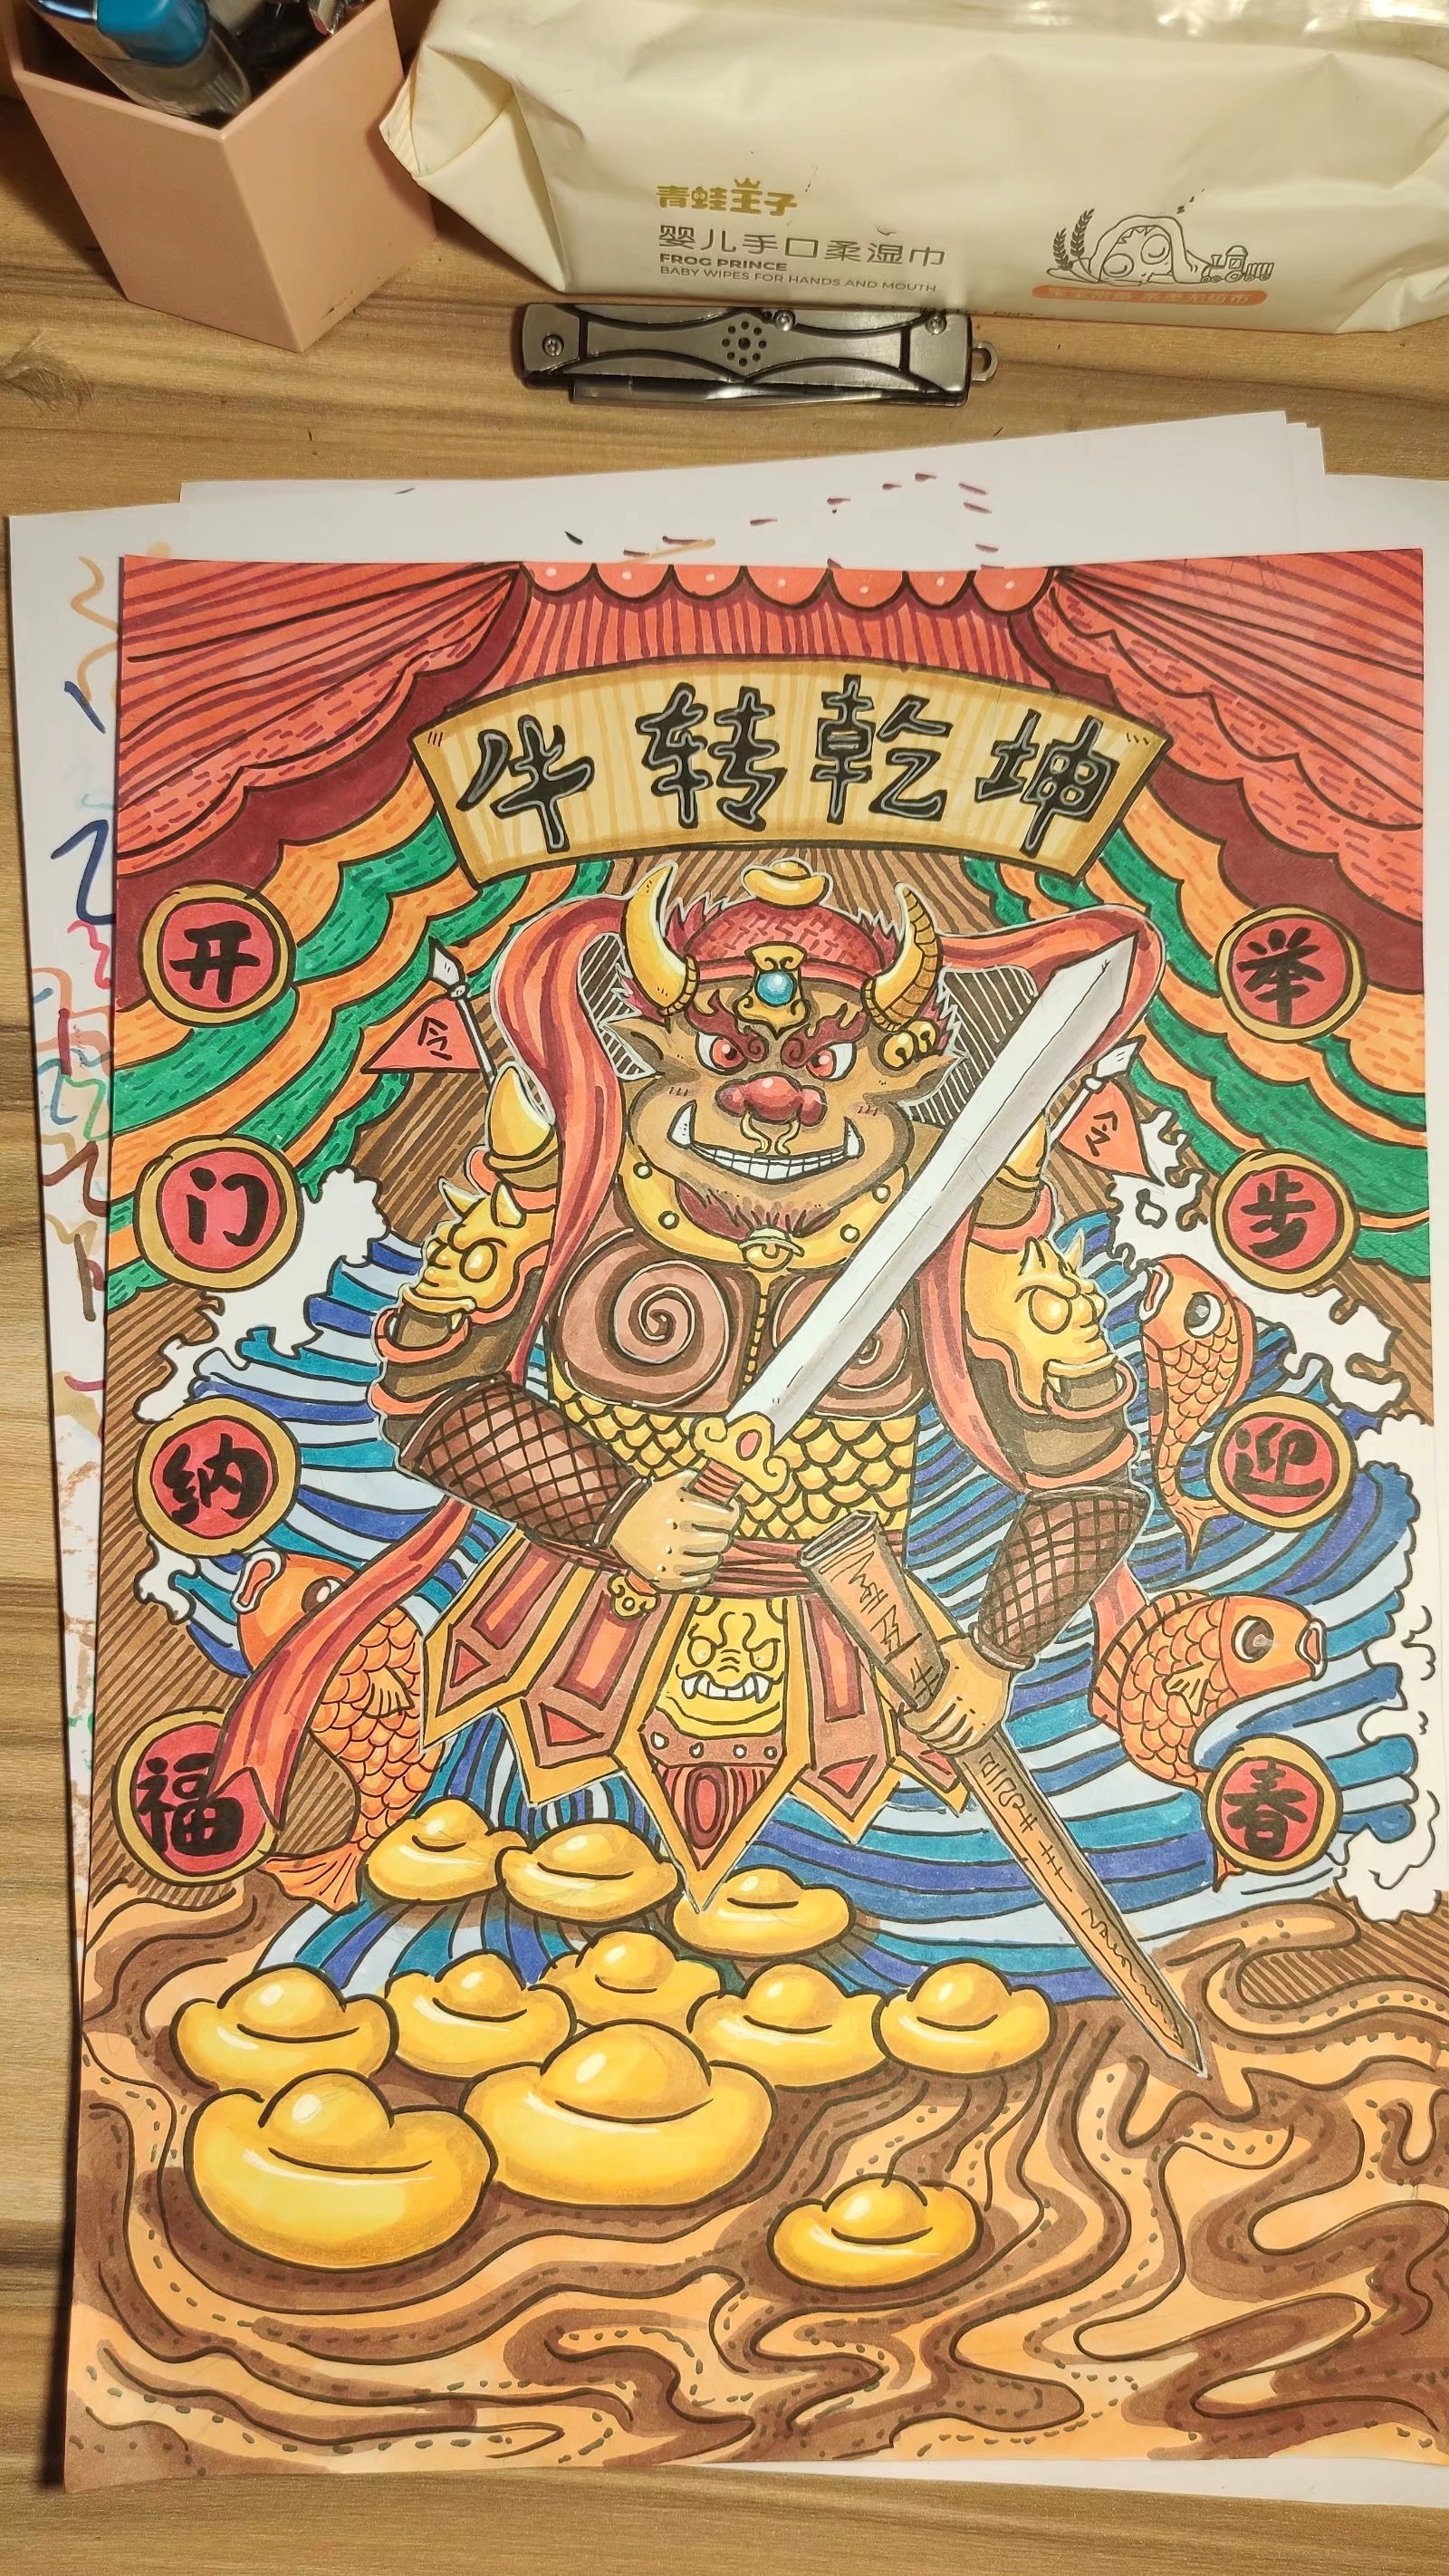 青蛙王子
婴儿手口柔湿巾
FROG PRINCE
BABY WIPES FOR HANDS AND MOUTH
牛转乾坤
开门纳福
举步迎春
令
令